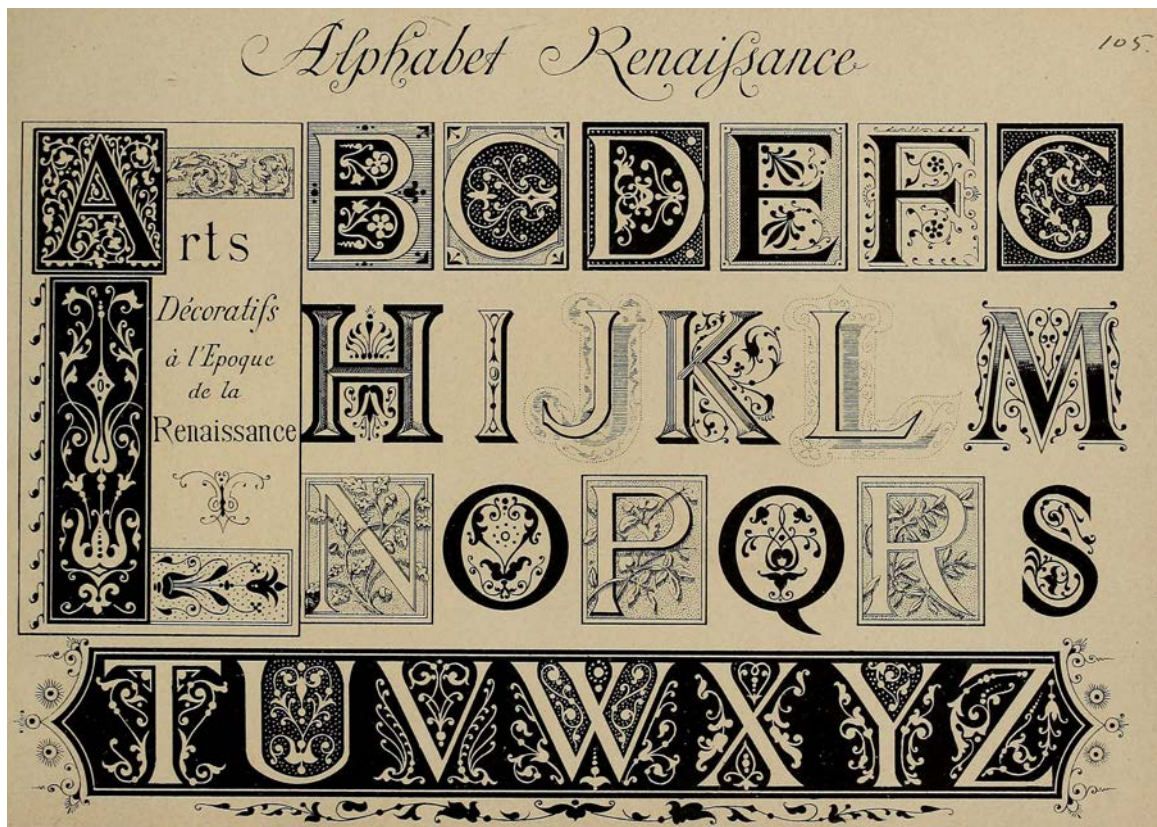 Alphabet Renaiſsance
105.
Arts
Décoratifs
à l'Epoque
de la
Renaissance
B C D E F G
H I J K L M
N O P Q R S
T U V W X Y Z